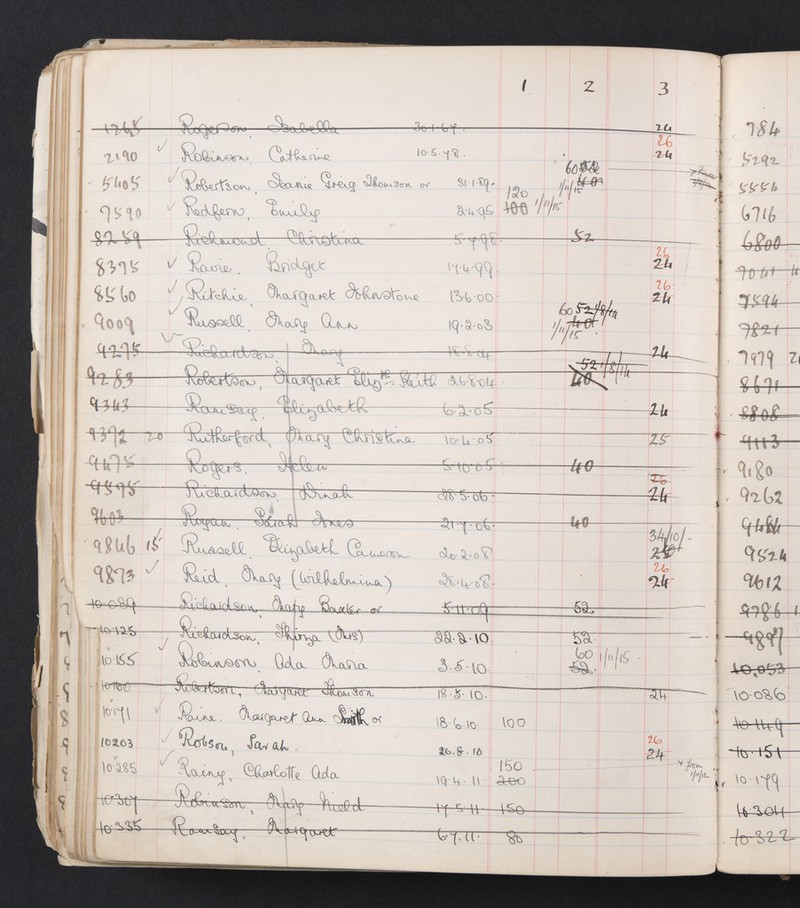 1 2 3
1265 Rogerson, Isabella 30.1.67. 24 784
2190 ✓ Robinson, Catherine 10.5.78. 26 24 5292
5405 ✓ Robertson, Jeanie Greig Thomson or 31.1.89. 60 52 40 1/11/15 5554
7590 ✓ Redfern, Emily 2.4.95 120 100 1/11/15 6716
8259 Richmond, Christina 5.7.98 52 6800
8375 ✓ Ravie, Bridget 17.4.99. 26 24 7041
8560 ✓ Ritchie, Margaret Johnstone 13.6.00. 26. 24 7594
9009 ✓ Russell, Mary Ann 19.2.03 60 52 1/8/14 40 1/11/15 7821
9275 Richardson, Mary 18.8.04 24 7979
9283 Robertson, Margaret Elizth Keith 26.8.04 52 1/8/14 40 8671
9343 Ramsay, Elizabeth 6.2.05 24 8808
9372 20 Rutherford, Mary Christina 10.4.05 25 9113
9475 Rogers, Helen 5.10.05 40 9180
9595 Richardson, Dinah 28.5.06. 26 24 9262
9603 Rogan, Sarah Innes 21.7.06. 40 9484
9846 15 Russell, Elizabeth Cameron 20.2.08 34/10/- 25 9524
9873 ✓ Reid, Mary (Wilhelmina) 28.4.08. 26 24 9612
10.089 Richardson, Mary Baxter or 5.11.09 52 9786
10.125 Richardson, Thirza (Mrs) 22.2.10. 52 9897
10.155 Robinson, Ada Maria 3.5.10. 60 1/11/15. 52. 10,053
10160 Robertson, Margaret Thomson 18.5.10. 24 10.086
10171 ✓ Raine, Margaret Ann Smith or 18.6.10 100 10.149
10203 ✓ Robson, Sarah. 26.8.10 26 24 10.151
10285 Rainy, Charlotte Ada 19.4.11. 150 200 from 1/1/12 10.179
10307 Robinson, Mary Nield 17.5.11 150 10304
10.335 Ramsay, Margaret 6.7.11. 80 10.322